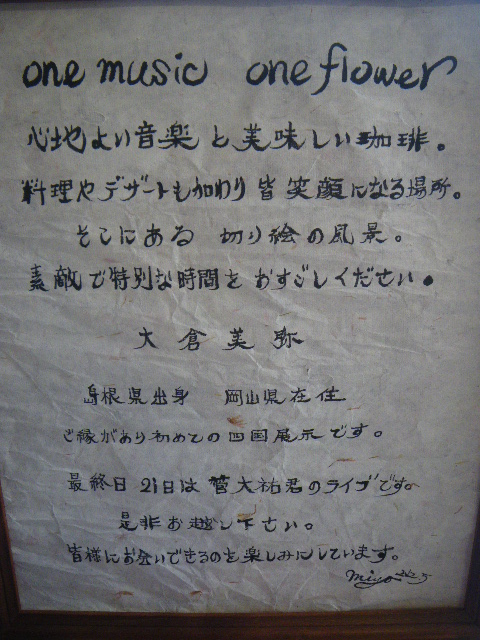 one music one flower
心地よい音楽と美味しい珈琲。
料理やデザートも加わり皆笑顔になる場所。
そこにある 切り絵の風景。
素敵で特別な時間をおすごしください。
大倉美弥
島根県出身 岡山県在住
ご縁があり初めての四国展示です。
最終日 21日は 菅大祐君のライブです。
是非お越し下さい。
皆様にお会いできるのを楽しみにしています。
miyo